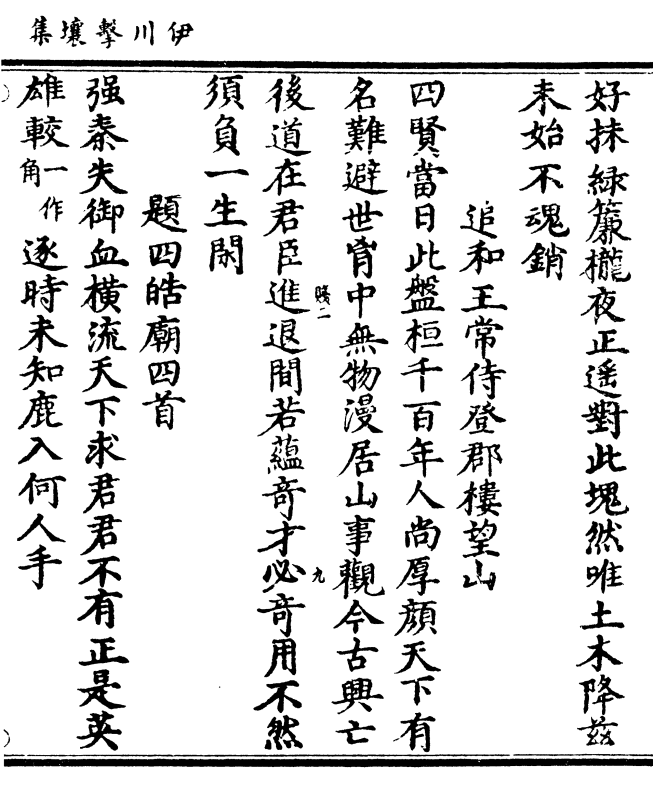 伊川擊壤集
好抹綠簾櫳夜正遥對此塊然唯土木降茲
未始不魂銷
追和王常侍登郡樓望山
四賢當日此盤桓千百年人尚厚顔天下有
名難避世胷中無物漫居山事觀今古興亡
後道在君臣進退間若蘊竒才必竒用不然
須負一生閑
賤二
九
題四皓廟四首
强秦失御血橫流天下求君君不有正是英
雄較一作角逐時未知鹿入何人手